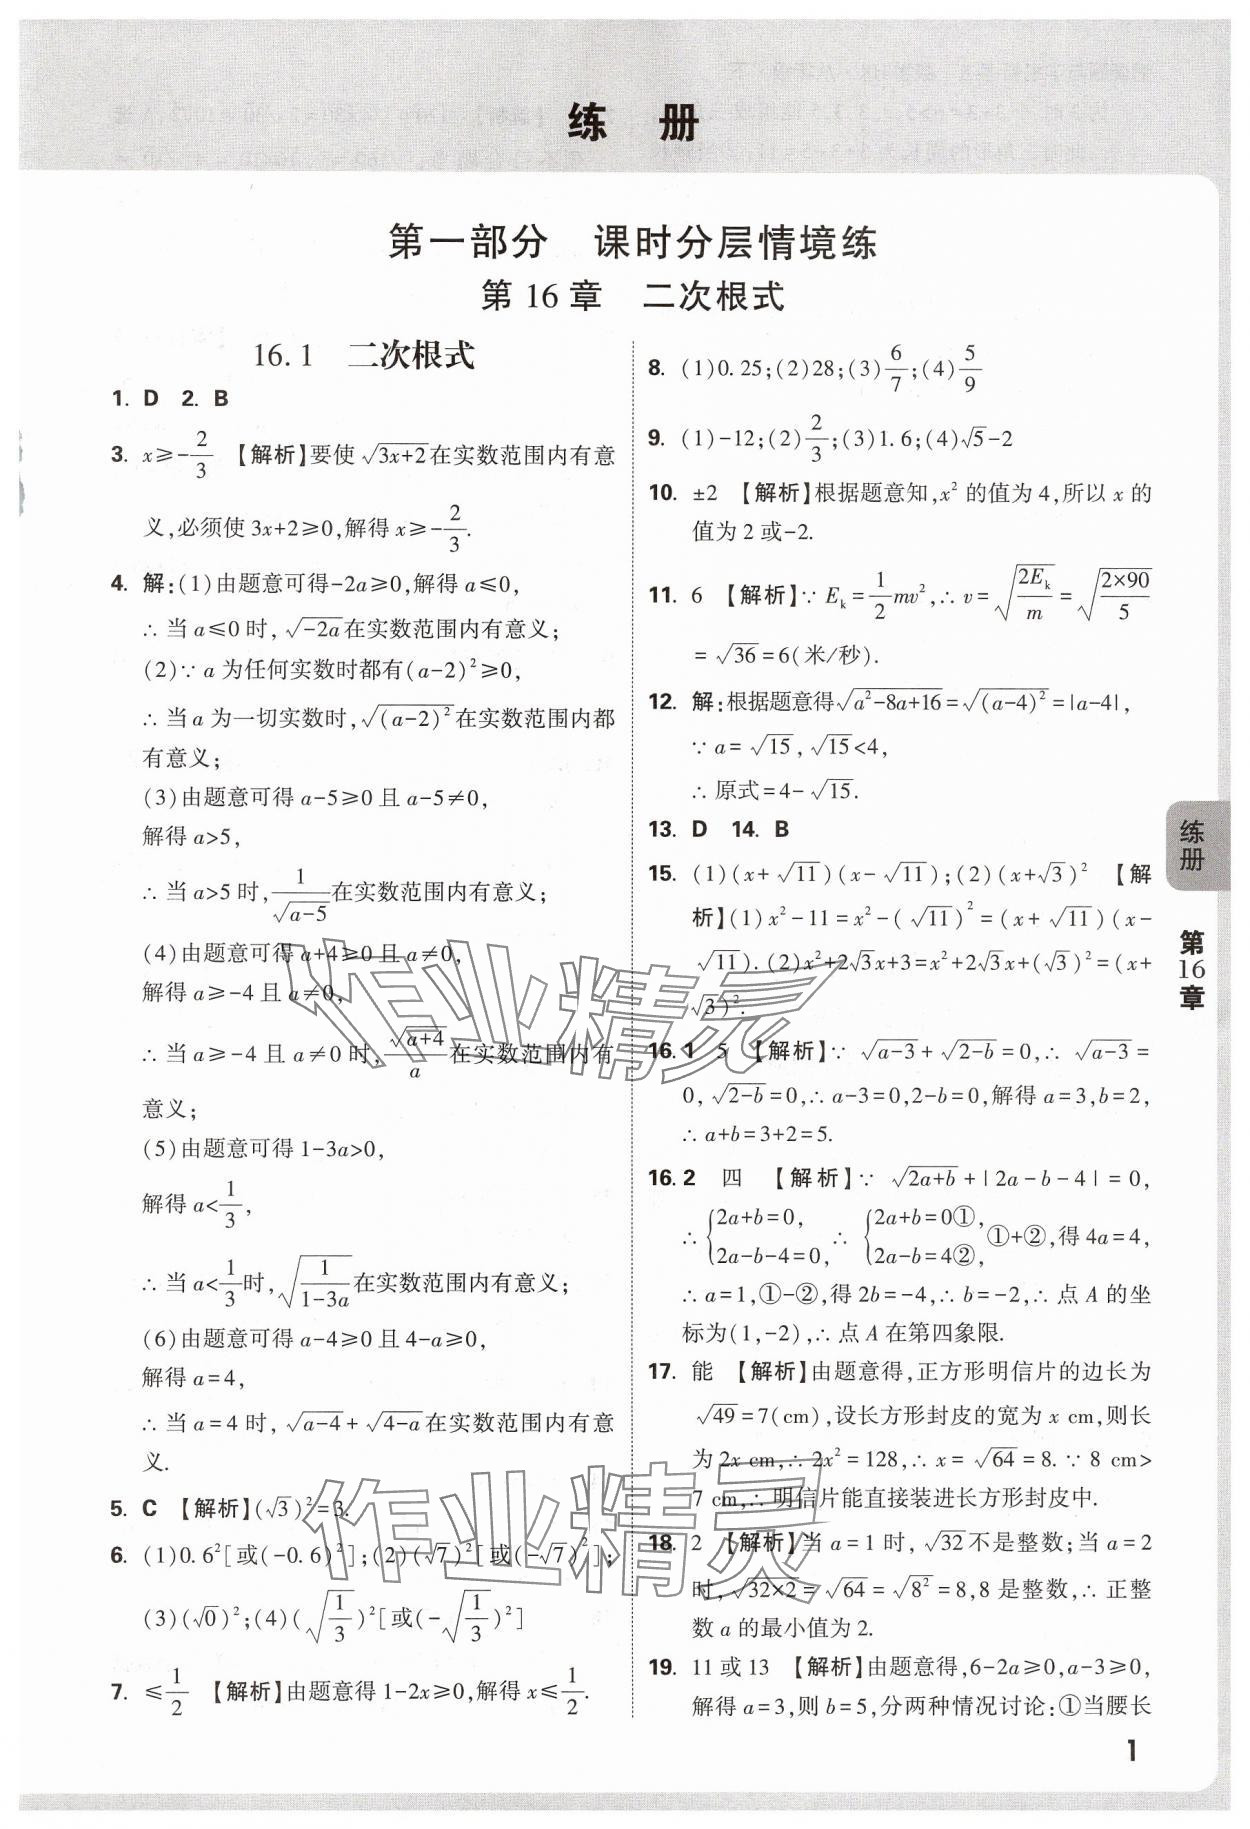 练 册
第一部分 课时分层情境练
第 16 章 二次根式
16.1 二次根式
1. D 2. B
3. x≥-2/3 【解析】要使√(3x+2)在实数范围内有意
义,必须使 3x+2≥0,解得 x≥-2/3.
4. 解:(1)由题意可得-2a≥0,解得 a≤0,
∴当 a≤0 时,√(-2a)在实数范围内有意义;
(2)∵a 为任何实数时都有(a-2)²≥0,
∴当 a 为一切实数时,√((a-2)²)在实数范围内都
有意义;
(3)由题意可得 a-5≥0 且 a-5≠0,
解得 a>5,
∴当 a>5 时,1/√(a-5)在实数范围内有意义;
(4)由题意可得 a+4≥0 且 a≠0,
解得 a≥-4 且 a≠0,
∴当 a≥-4 且 a≠0 时,√(a+4)/a在实数范围内有
意义;
(5)由题意可得 1-3a>0,
解得 a<1/3,
∴当 a<1/3时,√(1/(1-3a))在实数范围内有意义;
(6)由题意可得 a-4≥0 且 4-a≥0,
解得 a=4,
∴当 a=4 时,√(a-4)+√(4-a)在实数范围内有意
义.
5. C 【解析】(√3)²=3.
6. (1)0.6²[或(-0.6)²];(2)(√7)²[或(-√7)²];
(3)(√0)²;(4)(√(1/3))²[或(-√(1/3))²]
7. ≤1/2 【解析】由题意得 1-2x≥0,解得 x≤1/2.
8. (1)0.25;(2)28;(3)6/7;(4)5/9
9. (1)-12;(2)2/3;(3)1.6;(4)√5-2
10. ±2 【解析】根据题意知,x² 的值为 4,所以 x 的
值为 2 或-2.
11. 6 【解析】∵E_k=1/2mv²,∴v=√(2E_k/m)=√((2×90)/5)
=√36=6(米/秒).
12. 解:根据题意得√(a²-8a+16)=√((a-4)²)=|a-4|,
∵a=√15,√15<4,
∴原式=4-√15.
13. D 14. B
15. (1)(x+√11)(x-√11);(2)(x+√3)² 【解
析】(1)x²-11=x²-(√11)²=(x+√11)(x-
√11).(2)x²+2√3x+3=x²+2√3x+(√3)²=(x+
√3)².
16.1 5 【解析】∵√(a-3)+√(2-b)=0,∴√(a-3)=
0,√(2-b)=0,∴a-3=0,2-b=0,解得 a=3,b=2,
∴a+b=3+2=5.
16.2 四 【解析】∵√(2a+b)+|2a-b-4|=0,
∴{2a+b=0, 2a-b-4=0, ∴{2a+b=0①, 2a-b=4②, ①+②,得 4a=4,
∴a=1,①-②,得 2b=-4,∴b=-2,∴点 A 的坐
标为(1,-2),∴点 A 在第四象限.
17. 能 【解析】由题意得,正方形明信片的边长为
√49=7(cm),设长方形封皮的宽为 x cm,则长
为 2x cm,∴2x²=128,∴x=√64=8.∵8 cm>
7 cm,∴明信片能直接装进长方形封皮中.
18. 2 【解析】当 a=1 时,√32不是整数;当 a=2
时,√(32×2)=√64=√(8²)=8,8 是整数,∴正整
数 a 的最小值为 2.
19. 11 或 13 【解析】由题意得,6-2a≥0,a-3≥0,
解得 a=3,则 b=5,分两种情况讨论:①当腰长
练册
第16章
1
作业精灵
作业精灵